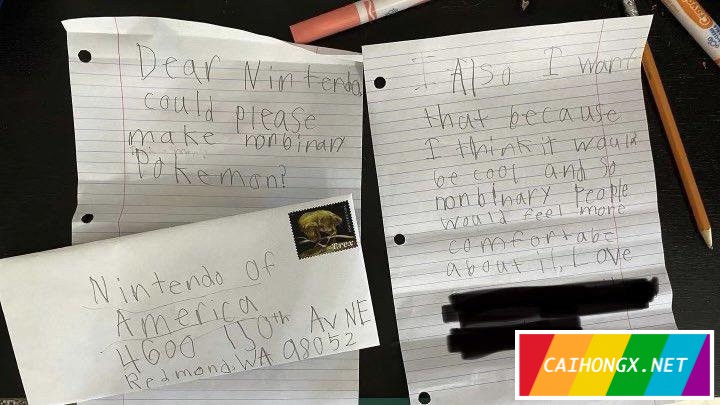 Dear Nintendo
could please
make nonbinary
Pokemon?
Also I want
that because
I think it would
be cool and so
nonbinary People
would feel more
comfortabe
about it, Love
T.rex
Nintendo of
America
4600 150th Av NE
Redmond, WA 98052
CAIHONGX.NET